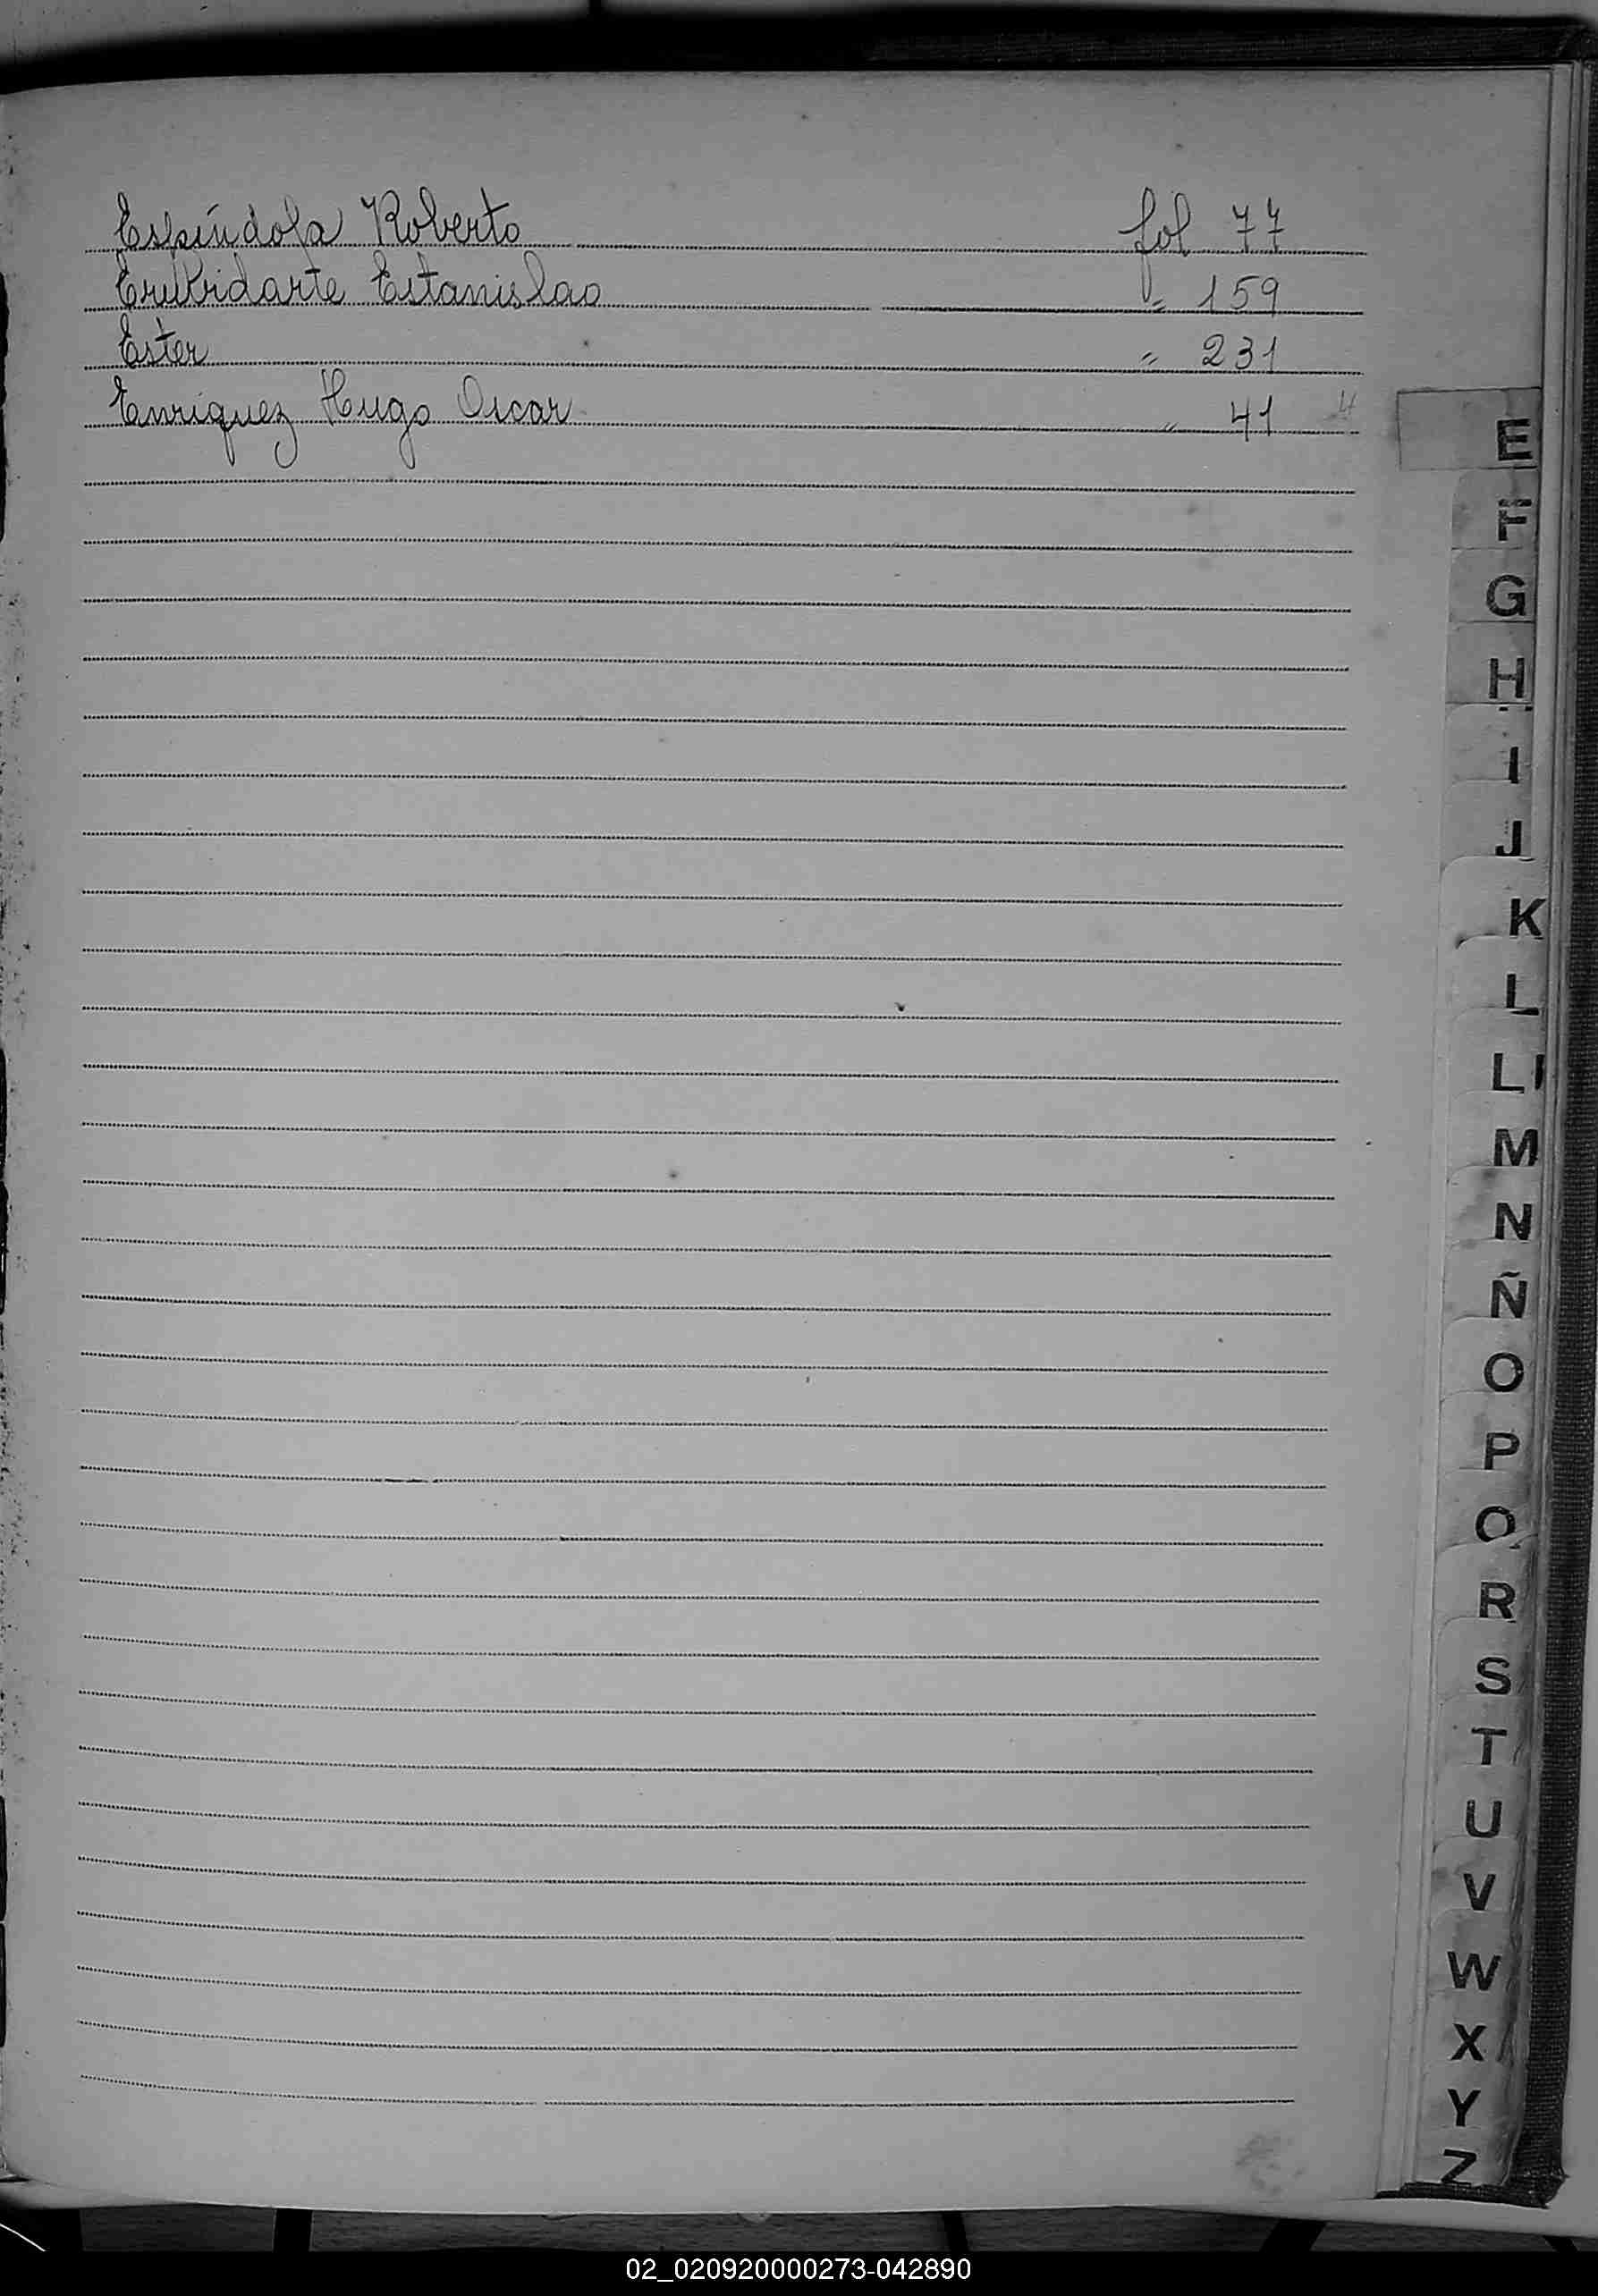 Espíndola Roberto fol 77
Estanislao " 159
Ester " 231
Enriquez Hugo Oscar " 41
E
F
G
H
I
J
K
L
Ll
M
N
Ñ
O
P
Q
R
S
T
U
V
W
X
Y
Z
02_020920000273-042890